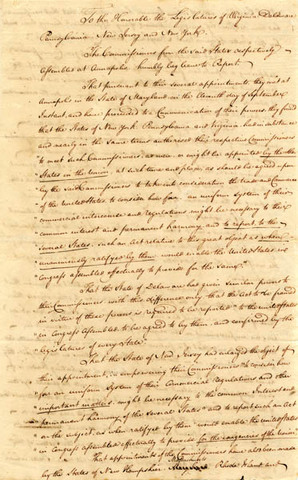 To the Honorable the Legislatures of Virginia, Delaware
Pennsylvania New Jersey and New York.
The Commissioners from the said States respectively
Assembled at Annapolis humbly beg leave to Report.
That pursuant to their several appointments, they met at
Annapolis in the State of Maryland on the eleventh day of September
Instant, and having proceeded to a Communication of their powers; they found
that the States of New York Pennsylvania and Virginia had in substance
and nearly in the same terms authorised their respective Commissioners
to meet such Commissioners, as were, or might be, appointed by the other
States in the Union, at such time and place, as should be agreed upon
by the said Commissioners to take into consideration the trade and Commerce
of the United States, to consider how far an uniform System in their
commercial intercourse and regulations might be necessary to their
common interest and permanent harmony, and to report to the
several States, such an Act relative to this great object as when
unanimously ratifyed by them would enable the United States in
Congress assembled effectually to provide for the same.
That the State of Delaware has given similar powers to
their Commissioners with this difference only that the Act to be framed
in virtue of these powers is required to be reported "to the united States
in Congress Assembled to be agreed to by them, and confirmed by the
Legislatures of every State."
That the State of New Jersey had enlarged the object of
their appointment, empowering their Commissioners "to consider how
far an uniform System in their Commercial Regulations and other
important matters might be necessary to the common Interest and
permanent harmony of the several States" and to report such an Act
on the subject, as when ratifyed by them "would enable the united States
in Congress assembled effectually to provide for the exigencies of the Union
That appointments of Commissioners have also been made
by the States of New Hampshire, Rhode Island and